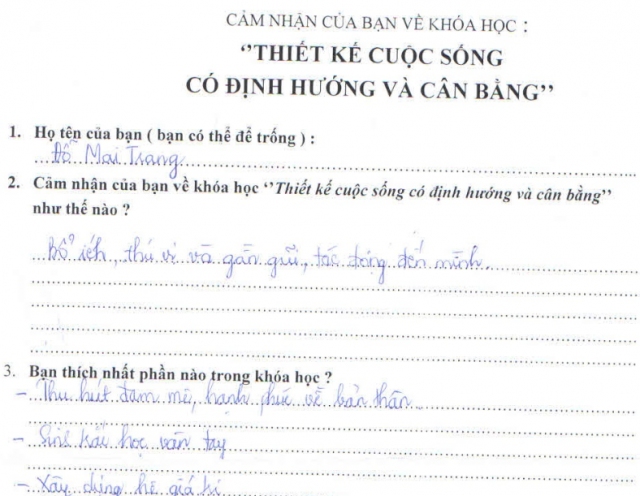 CẢM NHẬN CỦA BẠN VỀ KHÓA HỌC :
‘’THIẾT KẾ CUỘC SỐNG
CÓ ĐỊNH HƯỚNG VÀ CÂN BẰNG’’
1. Họ tên của bạn ( bạn có thể để trống ) :
Đỗ Mai Trang
2. Cảm nhận của bạn về khóa học ‘’Thiết kế cuộc sống có định hướng và cân bằng’’
như thế nào ?
Bổ ích, thú vị và gần gũi, tác động đến mình.
3. Bạn thích nhất phần nào trong khóa học ?
- Thu hút đam mê, hạnh phúc về bản thân
- Sinh trắc học vân tay
- Xây dựng hệ giá trị